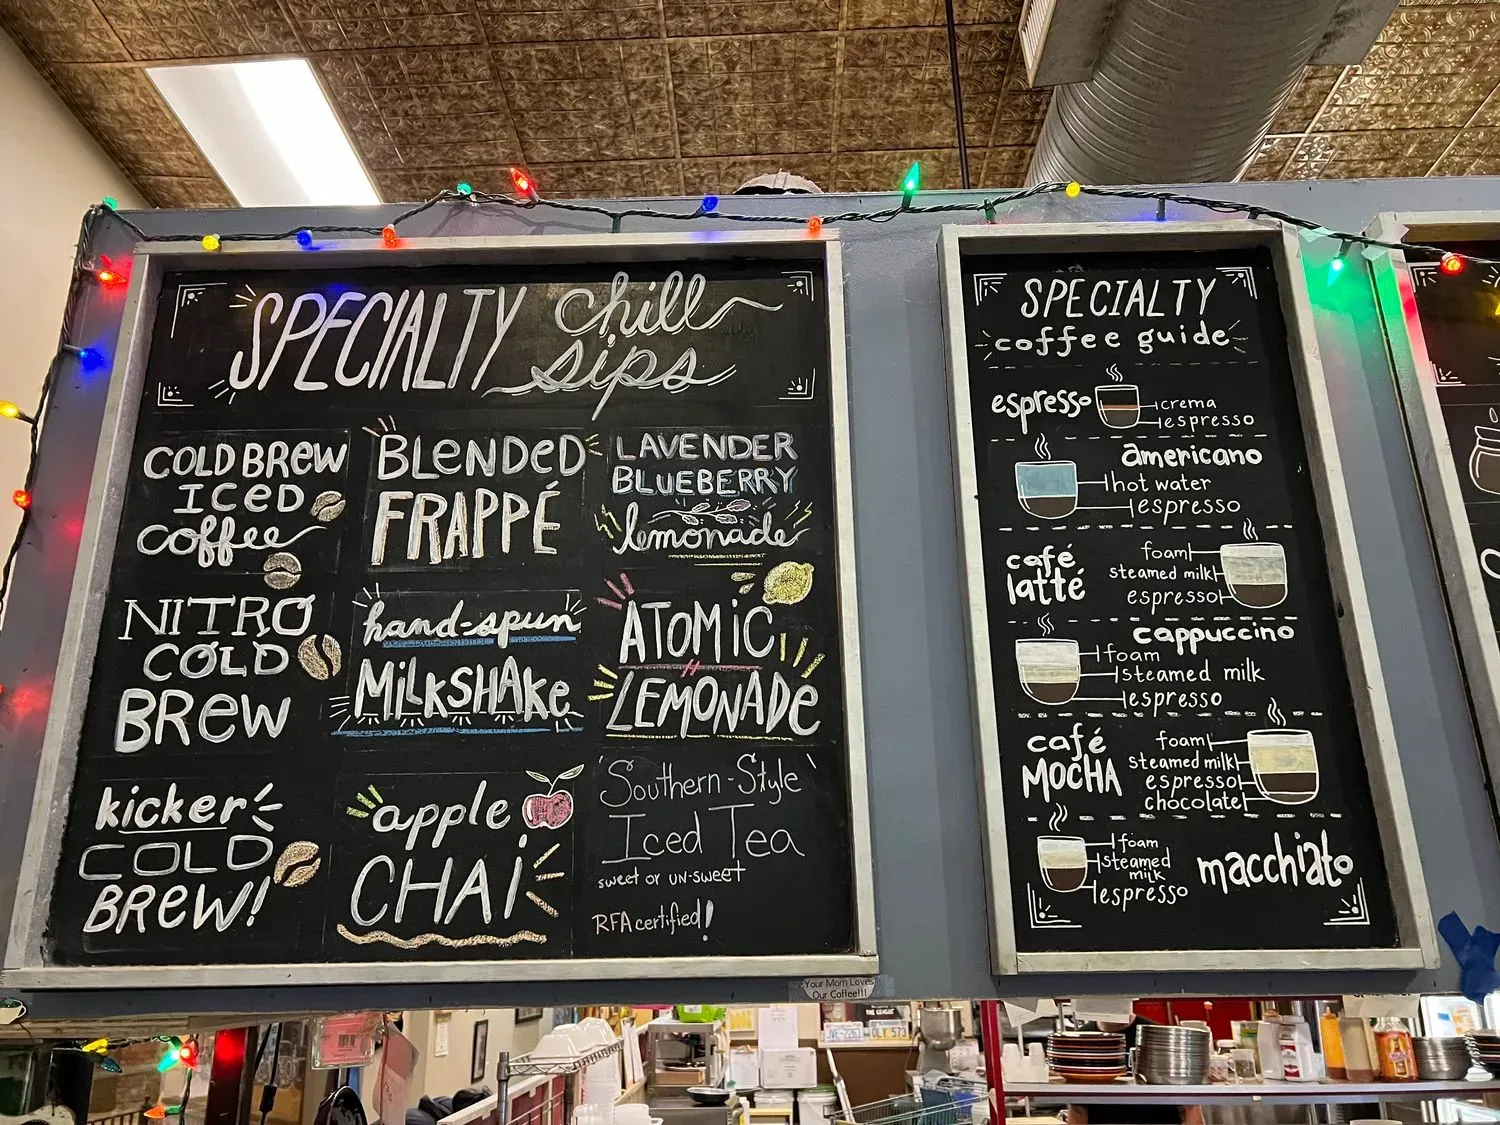 SPECIALTY chill
sips
COLD BREW
ICED
coffee
BLENDED
FRAPPÉ
LAVENDER
BLUEBERRY
lemonade
NITRO
COLD
BREW
hand-spun
MILKSHAKE
ATOMIC
LEMONADE
kicker
COLD
BREW!
apple
CHAI
'Southern-Style'
Iced Tea
sweet or un-sweet
RFA certified!
SPECIALTY
coffee guide
espresso
crema
espresso
americano
hot water
espresso
café
latté
foam
steamed milk
espresso
cappuccino
foam
steamed milk
espresso
café
MOCHA
foam
steamed milk
espresso
chocolate
macchiato
foam
steamed
milk
espresso
Your Mom Loves
Our Coffee!!!